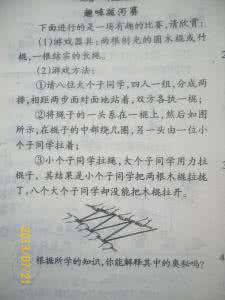 趣味拔河赛
下面进行的是一场有趣的比赛,请欣赏:
(1)游戏器具:两根刨光的圆木棍或竹
棍,一根结实的长绳。
(2)游戏方法:
①请八位大个子同学,四人一组,分成两
排,相距两步面对面地站着,双方各执一棍;
②将绳子的一头系在一棍上,然后如图
所示,在棍子的中部绕几圈,另一头由一位小
个子同学拉着;
③小个子同学拉绳,大个子同学用力拉
棍子,其结果是小个子同学把两根木棍拉拢
了,八个大个子同学却没能把木棍拉开。
根据所学的知识,你能解释其中的奥秘吗?
2013/07/21